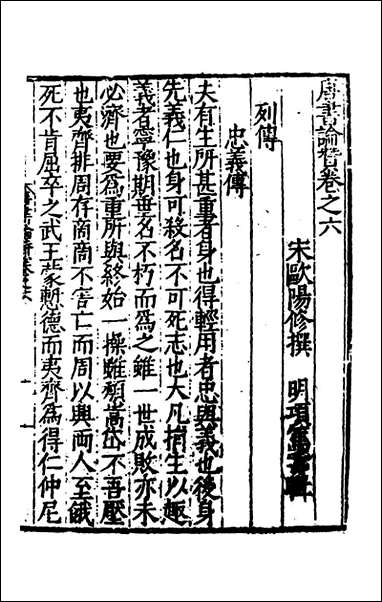 唐書論贊卷之六
宋歐陽修撰　明項篤壽輯
列傳
忠義傳
夫有生所甚重者身也得輕用者忠與義也後身
先義仁也身可殺名不可死志也大凡捐生以趣
義者寧豫期垂名不朽而為之雖一世成敗亦未
必濟也要為重所與終始一操雖頹嵩岱不吾壓
也夷齊排周存商商不害亡而周以興兩人至餓
死不肯屈卒之武王蒙慙德而夷齊為得仁仲尼